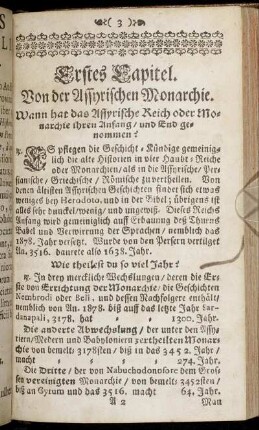 ( 3 )
Erstes Capitel.
Von der Assyrischen Monarchie.
Wann hat das Assyrische Reich oder Mo-
narchie ihren Anfang / und End ge-
nommen?
ES pflegen die Geschicht-Kündige gemeinig-
lich die alte Historien in vier Haubt-Reiche
oder Monarchien / als in die Assyrische / Per-
sianische / Griechische / Römische zu vertheilen. Von
denen ältesten Assyrischen Geschichten findet sich etwas
weniges bey Herodoto, und in der Bibel; übrigens ist
alles sehr dunckel / wenig / und ungewiß. Dieses Reichs
Anfang wird gemeiniglich auf Erbauung deß Thurns
Babel und Verwirrung der Sprachen / nemblich das
1878. Jahr versetzt. Wurde von den Persern vertilget
An. 3516. daurete also 1638. Jahr.
Wie theilest du so viel Jahr?
In drey merckliche Wechslungen / deren die Er-
ste von Errichtung der Monarchie / die Geschichten
Nembrodi oder Beli, und dessen Nachfolgere enthält/
nemblich von An. 1878. biß auff das letzte Jahr Sar-
danapali, 3178. hat 1300. Jahr.
Die anderte Abwechslung / der unter den Assy-
riern / Medern und Babyloniern zertheilten Monar-
chie von bemelt 3178sten / biß in das 3452. Jahr/
macht 274. Jahr.
Die Dritte / der von Nabuchodonosore dem Gros-
sen vereinigten Monarchie / von bemelt 3452sten/
biß an Cyrum und das 3516. macht 64. Jahr.
A 2 Man